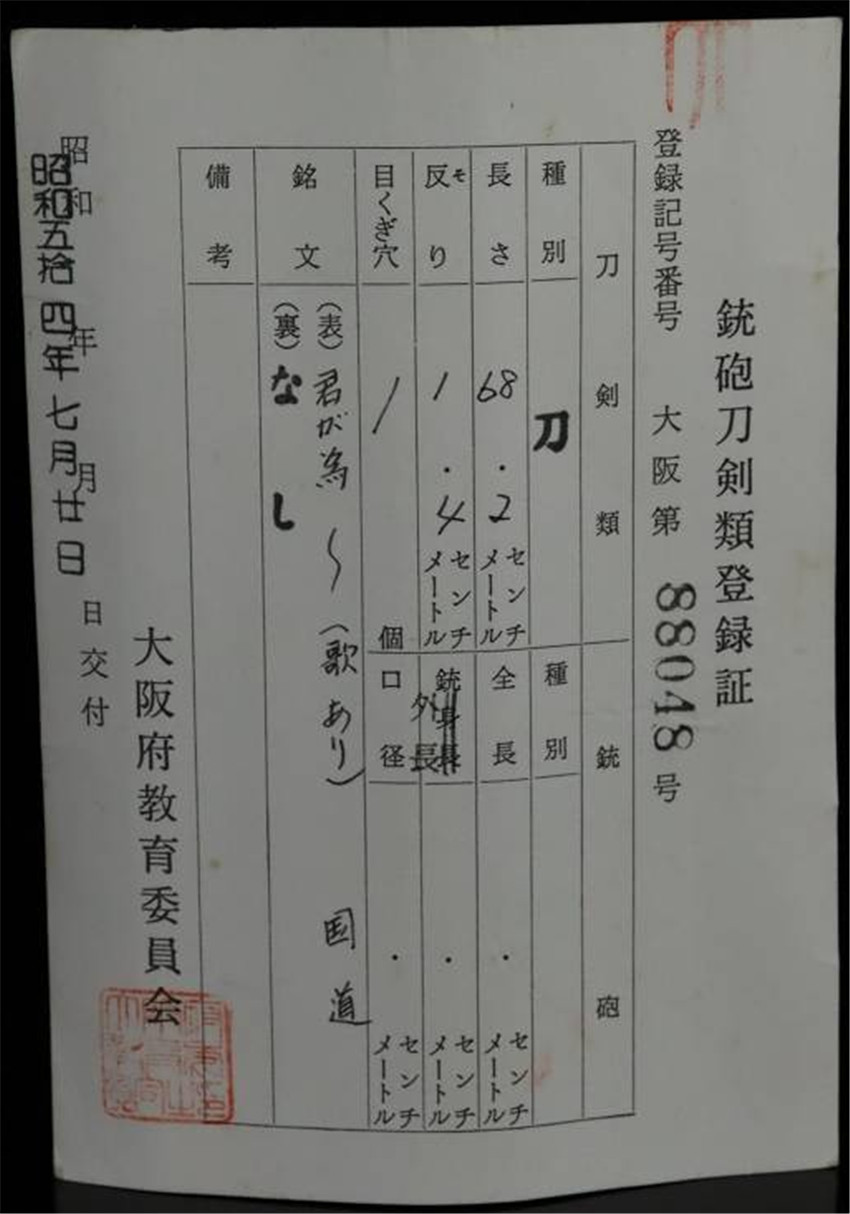 銃砲刀剣類登録証
登録記号番号 大阪第 88048 号
刀剣類
種別 刀
長さ 68.2 センチメートル
反り モ 1.4 センチメートル
目くぎ穴 1 個
銘文 (表)君が為〜(歌あり) 国道
(裏)なし
備考
銃砲
種別
全長 . センチメートル
銃身長 外長 . センチメートル
口径 . センチメートル
大阪府教育委員会
昭和 年 月 日交付
昭和五拾四年七月廿日